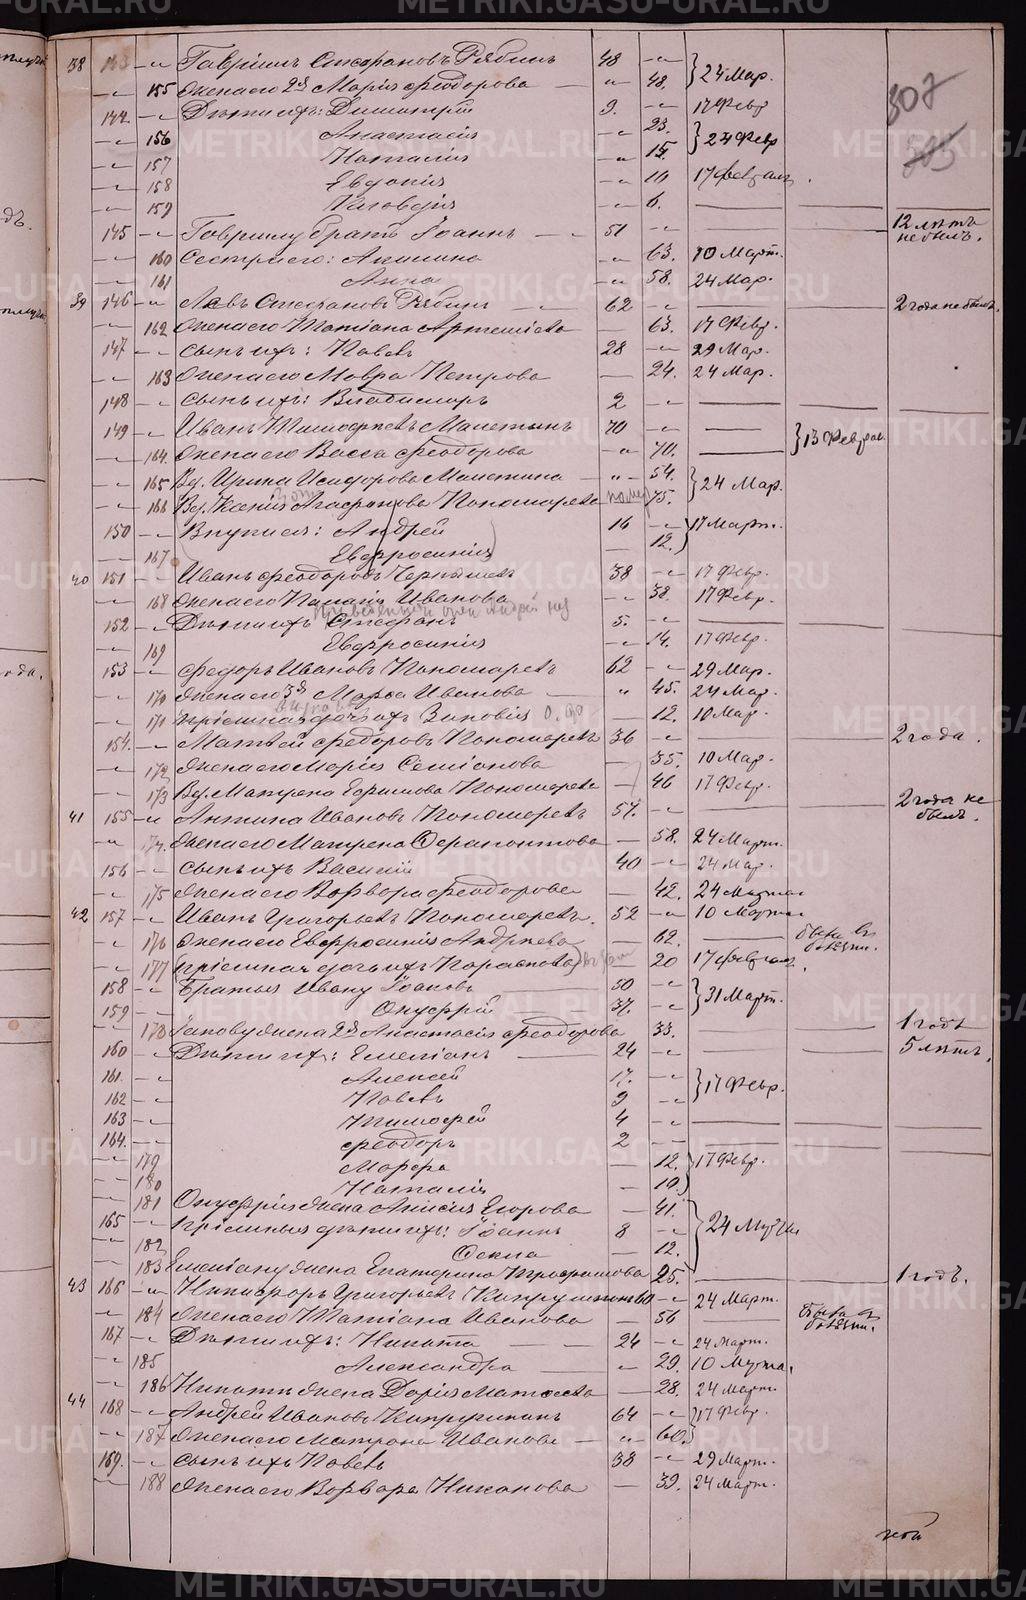 307
305
38 143 -"- Гавріилъ Стефановъ Рябинъ 48 -"- } 24 Мар.
-"- 155 Жена его 2я Марія Феодорова — " 48.
144. -"- Дѣти ихъ: Димитрій 9. -"- 17 Февр
-"- 156 Анастасія -"- 23. } 24 Февр
-"- 157 Наталія " 15.
-"- 158 Евдокія -"- 10 17 Февраля.
-"- 159 -"- 6. — —
145 -"- Гавриилу братъ Іоаннъ — 51 -"- — — 12 лѣтъ не былъ.
-"- 160 Сестры его: -"- 63. 10 Март.
-"- 161 Анна -"- 58. 24 Мар.
39 146 -"- Левъ Стефановъ Рябинъ — 62 -"- — — 2 года не былъ.
-"- 162 Жена его Татіана Артемьева -"- 63. 17 Февр.
147 -"- Сынъ ихъ: Павелъ 28 -"- 29 Мар.
-"- 163 Жена его Мавра Петрова — 24. 24 Мар.
148 -"- Сынъ ихъ: Владимиръ 2 -"- — — —
149 -"- Иванъ Тимофеевъ 70 -"- — } 13 Феврал
-"- 164. Жена его Васса Феодорова -"- 70. —
-"- 165 Вд. Ирина Исидорова — " - 54. } 24 Мар.
-"- 166 Вд. Ксенія Агафонова Пономарева 75.
150 -"- Внучата: Андрей 16 -"- } 17 Март.
-"- 167 Евфросинія — 12.
40 151 -"- Иванъ Феодоровъ 38 -"- 17 Февр.
-"- 168 Жена его Иванова -"- 38. 17 Февр.
152 -"- Дѣти ихъ Стефанъ 5. -"- — — —
-"- 169 Евфросинія -"- 14. 17 Февр.
153 -"- Федоръ Ивановъ Пономаревъ 62 -"- 29 Мар.
-"- 170 Жена его 3я Марѳа Иванова — " 45. 24 Мар.
-"- 171 Пріемная дочь ихъ Зиновія — 12. 10 Мар.
154. -"- Матвей Федоровъ Пономаревъ 36 -"- — — 2 года.
-"- 172 Жена его Марія Семіонова — 35. 10 Мар.
-"- 173 Вд. Матрена Ефимова Пономарева — 46 17 Февр.
41 155 -"- Антипа Ивановъ Пономаревъ 57. -"- — — 2 года не былъ.
-"- 174. Жена его Матрена Ферапонтова — 58. 24 Март.
156 -"- Сынъ ихъ Василій 40 -"- 24 Мар.
-"- 175 Жена его Варвара Феодорова — 42. 24 Марта
42 157 -"- Иванъ Григорьевъ Пономаревъ. 52 -"- 10 Марта
-"- 176 Жена его Евфросинія Андреева — 62. — была въ болѣзни.
-"- 177 (Пріемная дочь ихъ Парасковья) — 20 17 Февраля.
158 -"- Братья Ивану Іаковъ — 50 -"- } 31 Март.
159 -"- Онуфрій — 37. -"-
-"- 178 Іакову жена 2я Анастасія Феодорова 33. — — 1 годъ
160 -"- Дѣти ихъ: Емеліанъ — 24 -"- — — 5 лѣтъ.
161. -"- Алексей 17. -"- } 17 Февр.
162 -"- Павелъ 9 -"-
163 -"- Тимофей 4 -"- — — —
164. -"- Феодоръ 2 -"- — — —
-"- 179 Марфа — 12. } 17 Февр.
-"- 180 Наталія — 10.
-"- 181 Онуфрія жена Анисія Егорова — 41. } 24 Марта
165 -"- Пріемныя дѣти ихъ: Іоаннъ 8 -"-
-"- 182 Фекла — 12.
-"- 183 Емеліану жена Екатерина Трофимова 25. — — 1 годъ.
43 166 -"- Никифоръ Григорьевъ 60 -"- 24 Март.
-"- 184 Жена его Татіана Иванова — 56 — была въ болѣзни.
167 -"- Дѣти ихъ: Никита — 24 -"- 24 Март.
-"- 185 Александра — " 29. 10 Марта.
-"- 186 Никиты жена Дарія Матвеева — 28. 24 Март.
44 168 -"- Андрей Ивановъ 64 -"- } 17 Февр.
-"- 187 Жена его Матрона Иванова — " 60.
169. -"- Сынъ ихъ Павелъ 38 -"- 29 Март.
-"- 188 Жена его Варвара Никонова — 39. 24 Март.
METRIKI.GASO-URAL.RU